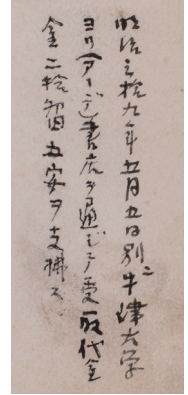 明治三拾九年五月五日別ニ牛津大学
ヨリアーデン書店ヲ通じテ受取代金
金二拾留五安ヲ支拂フ